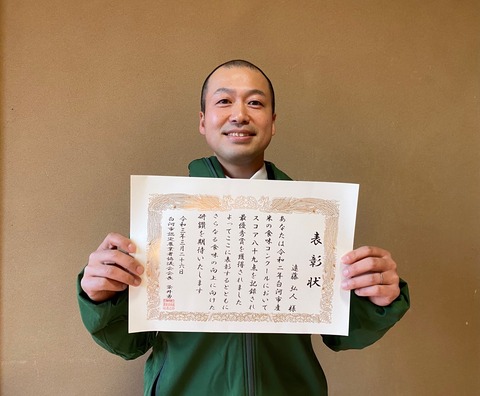 表彰状
遠藤 弘人 様
あなたは令和二年白河市産
米の食味コンクールにおいて
スコア八十九点を記録され
最優秀賞を獲得されました
よってここに表彰するとともに
さらなる食味の向上に向けた
研鑽を期待いたします
令和三年三月二十六日
白河市認定農業者協議会会長